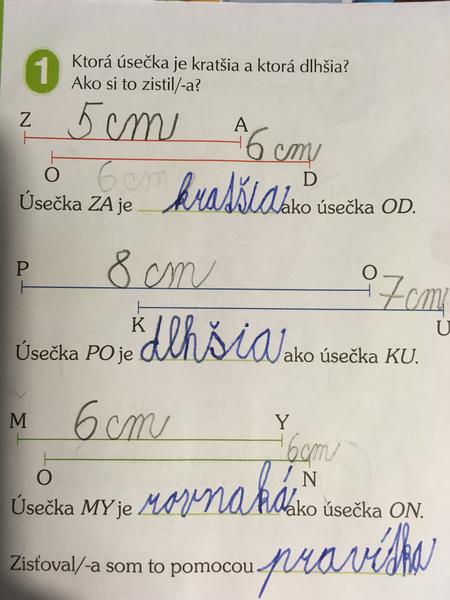 1 Ktorá úsečka je kratšia a ktorá dlhšia?
Ako si to zistil/-a?
Z 5 cm A 6 cm
O 6 cm D
Úsečka ZA je kratšia ako úsečka OD.
P 8 cm O 7 cm
K U
Úsečka PO je dlhšia ako úsečka KU.
M 6 cm Y 6 cm
O N
Úsečka MY je rovnaká ako úsečka ON.
Zisťoval/-a som to pomocou pravítka